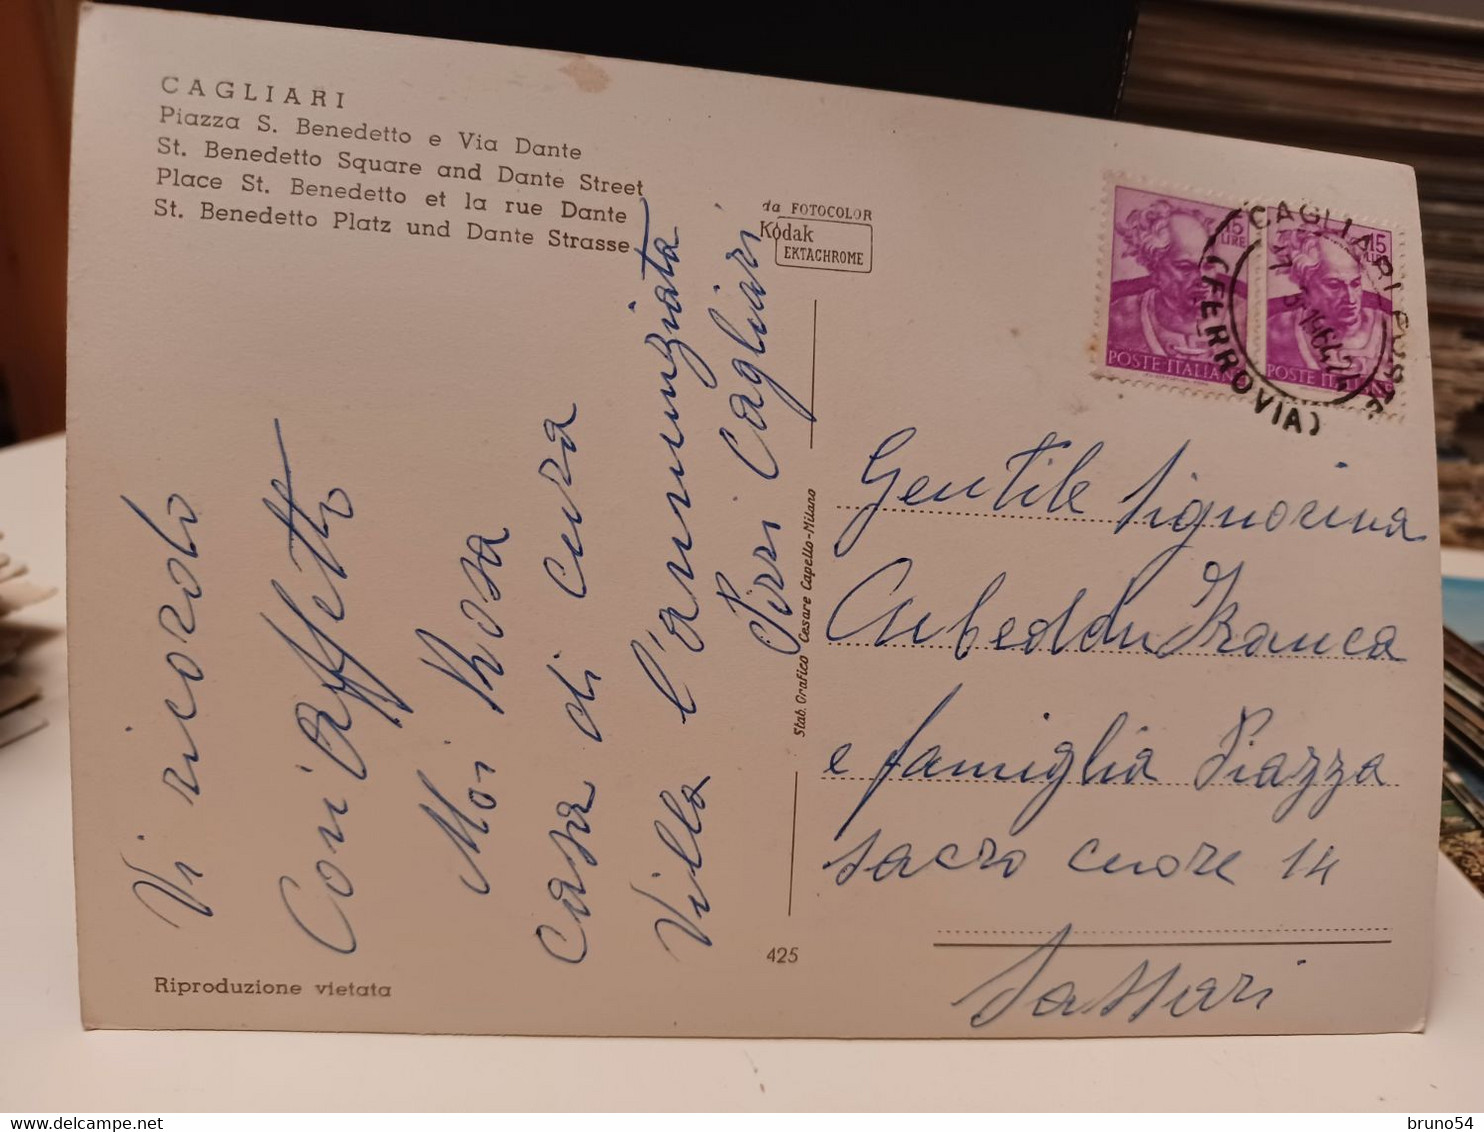 CAGLIARI
Piazza S. Benedetto e Via Dante
St. Benedetto Square and Dante Street
Place St. Benedetto et la rue Dante
St. Benedetto Platz und Dante Strasse
da FOTOCOLOR
Kodak
EKTACHROME
15
LIRE
POSTE ITALIANE
15
LIRE
POSTE ITALIANE
CAGLIARI
(FERROVIA)
Vi ricordo
Con Affetto
Moi Rosa
Casa di cura
Villa l'annunziata
Pirri Cagliari
Stab. Grafico Cesare Capello-Milano
Gentile Signorina
Cubeddu Franca
e famiglia Piazza
sacro cuore 14
Sassari
425
Riproduzione vietata
bruno54